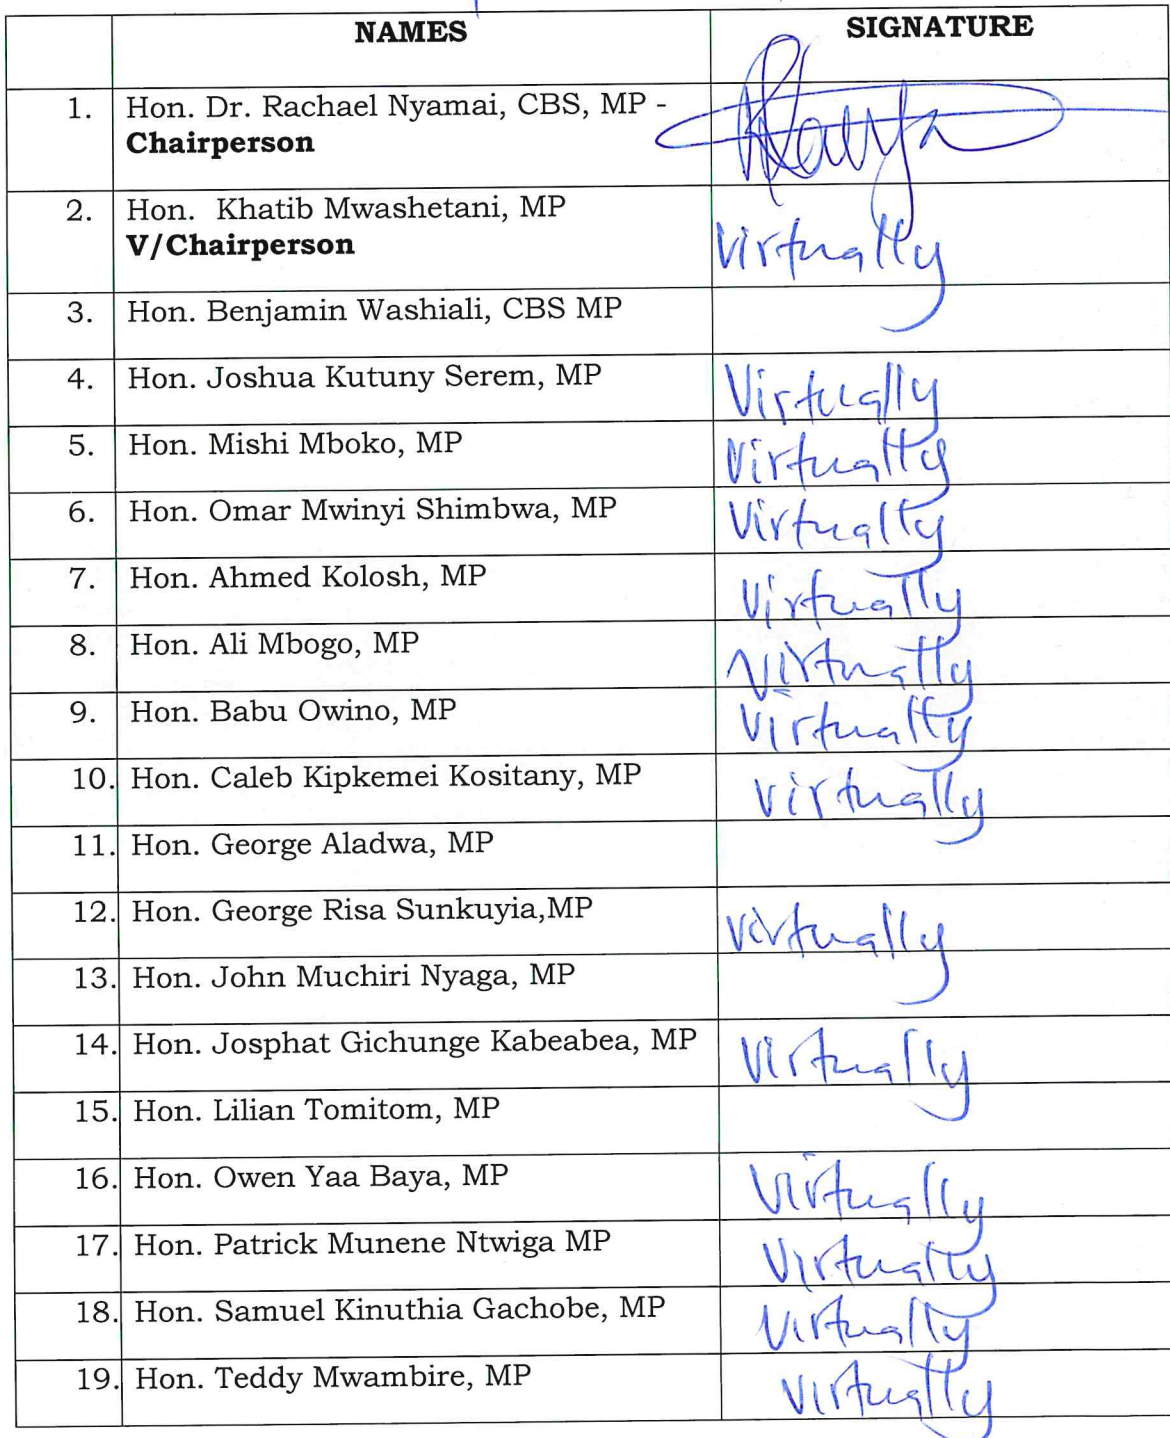 NAMES SIGNATURE
1. Hon. Dr. Rachael Nyamai, CBS, MP -
Chairperson
2. Hon. Khatib Mwashetani, MP
V/Chairperson Virtually
3. Hon. Benjamin Washiali, CBS MP
4. Hon. Joshua Kutuny Serem, MP Virtually
5. Hon. Mishi Mboko, MP Virtually
6. Hon. Omar Mwinyi Shimbwa, MP Virtually
7. Hon. Ahmed Kolosh, MP Virtually
8. Hon. Ali Mbogo, MP Virtually
9. Hon. Babu Owino, MP Virtually
10. Hon. Caleb Kipkemei Kositany, MP Virtually
11. Hon. George Aladwa, MP
12. Hon. George Risa Sunkuyia,MP Virtually
13. Hon. John Muchiri Nyaga, MP
14. Hon. Josphat Gichunge Kabeabea, MP Virtually
15. Hon. Lilian Tomitom, MP
16. Hon. Owen Yaa Baya, MP Virtually
17. Hon. Patrick Munene Ntwiga MP Virtually
18. Hon. Samuel Kinuthia Gachobe, MP Virtually
19. Hon. Teddy Mwambire, MP Virtually